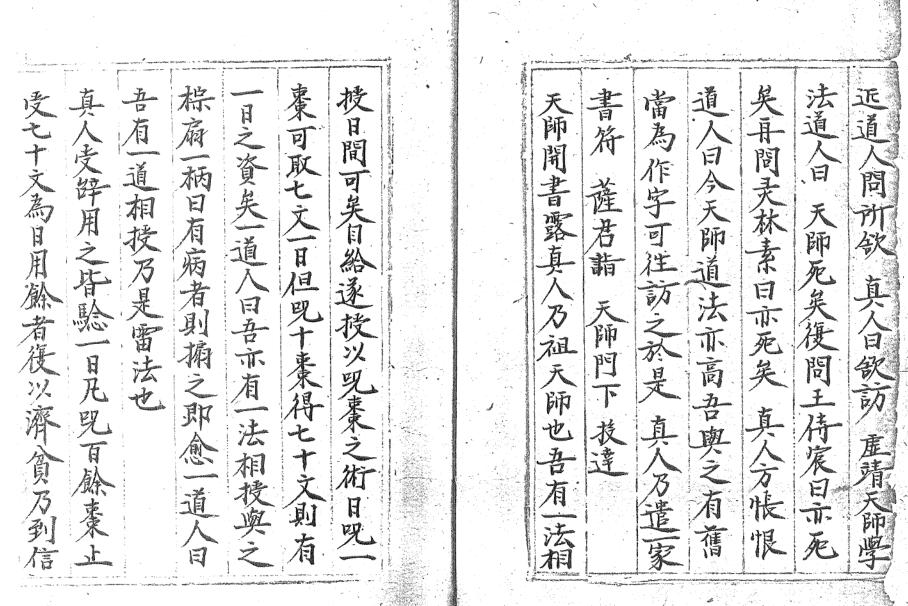 近道人問所欲　真人曰欲訪　虛靖天師學
法道人曰　天師死矣復問王侍宸曰亦死
矣再問灵林素曰亦死矣　真人方悵恨
道人曰今天師道法亦高吾與之有舊
當為作字可往訪之於是　真人乃遣一家
書符　薩君詣　天師門下投達
天師開書露真人乃祖天師也吾有一法相
授日間可矣自給遂授以呪棗之術曰呪一
棗可取七文一日但呪十棗得七十文則有
一日之資矣一道人曰吾亦有一法相授與之
棕扇一柄曰有病者則搧之即愈一道人曰
吾有一道相授乃是雷法也
真人受辞用之皆驗一日凡呪百餘棗止
受七十文為日用餘者復以濟貧乃到信